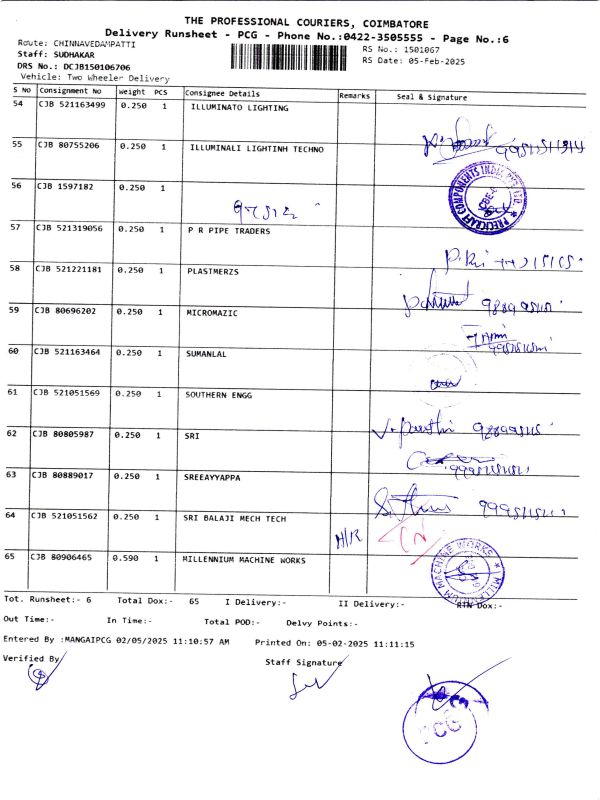 THE PROFESSIONAL COURIERS, COIMBATORE
Delivery Runsheet - PCG - Phone No.:0422-3505555 - Page No.:6
Route: CHINNAVEDAMPATTI
RS No.: 1501067
Staff: SUDHAKAR
RS Date: 05-Feb-2025
DRS No.: DCJB150106706
Vehicle: Two Wheeler Delivery
S No Consignment No Weight PCS Consignee Details Remarks Seal & Signature
54 CJB 521163499 0.250 1 ILLUMINATO LIGHTING
55 CJB 80755206 0.250 1 ILLUMINALI LIGHTINH TECHNO
56 CJB 1597182 0.250 1
PRECICRAFT COMPONENTS INDIA PVT LTD
57 CJB 521319056 0.250 1 P R PIPE TRADERS
58 CJB 521221181 0.250 1 PLASTMERZS
59 CJB 80696202 0.250 1 MICROMAZIC
60 CJB 521163464 0.250 1 SUMANLAL
61 CJB 521051569 0.250 1 SOUTHERN ENGG
62 CJB 80805987 0.250 1 SRI
63 CJB 80889017 0.250 1 SREEAYYAPPA
64 CJB 521051562 0.250 1 SRI BALAJI MECH TECH
N/R
65 CJB 80906465 0.590 1 MILLENNIUM MACHINE WORKS
MILLENNIUM MACHINE WORKS
Tot. Runsheet:- 6 Total Dox:- 65 I Delivery:- II Delivery:- RTN Dox:-
Out Time:- In Time:- Total POD:- Delvy Points:-
Entered By :MANGAIPCG 02/05/2025 11:10:57 AM Printed On: 05-02-2025 11:11:15
Verified By Staff Signature
PCG